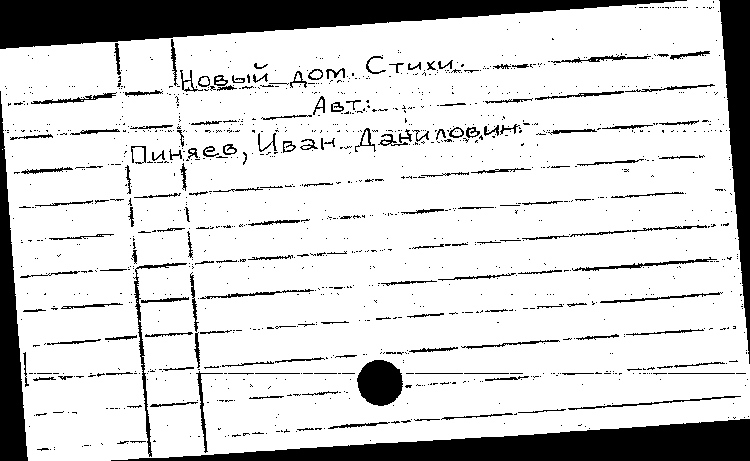 Новый дом. Стихи.
Авт:
Пиняев, Иван Данилович.